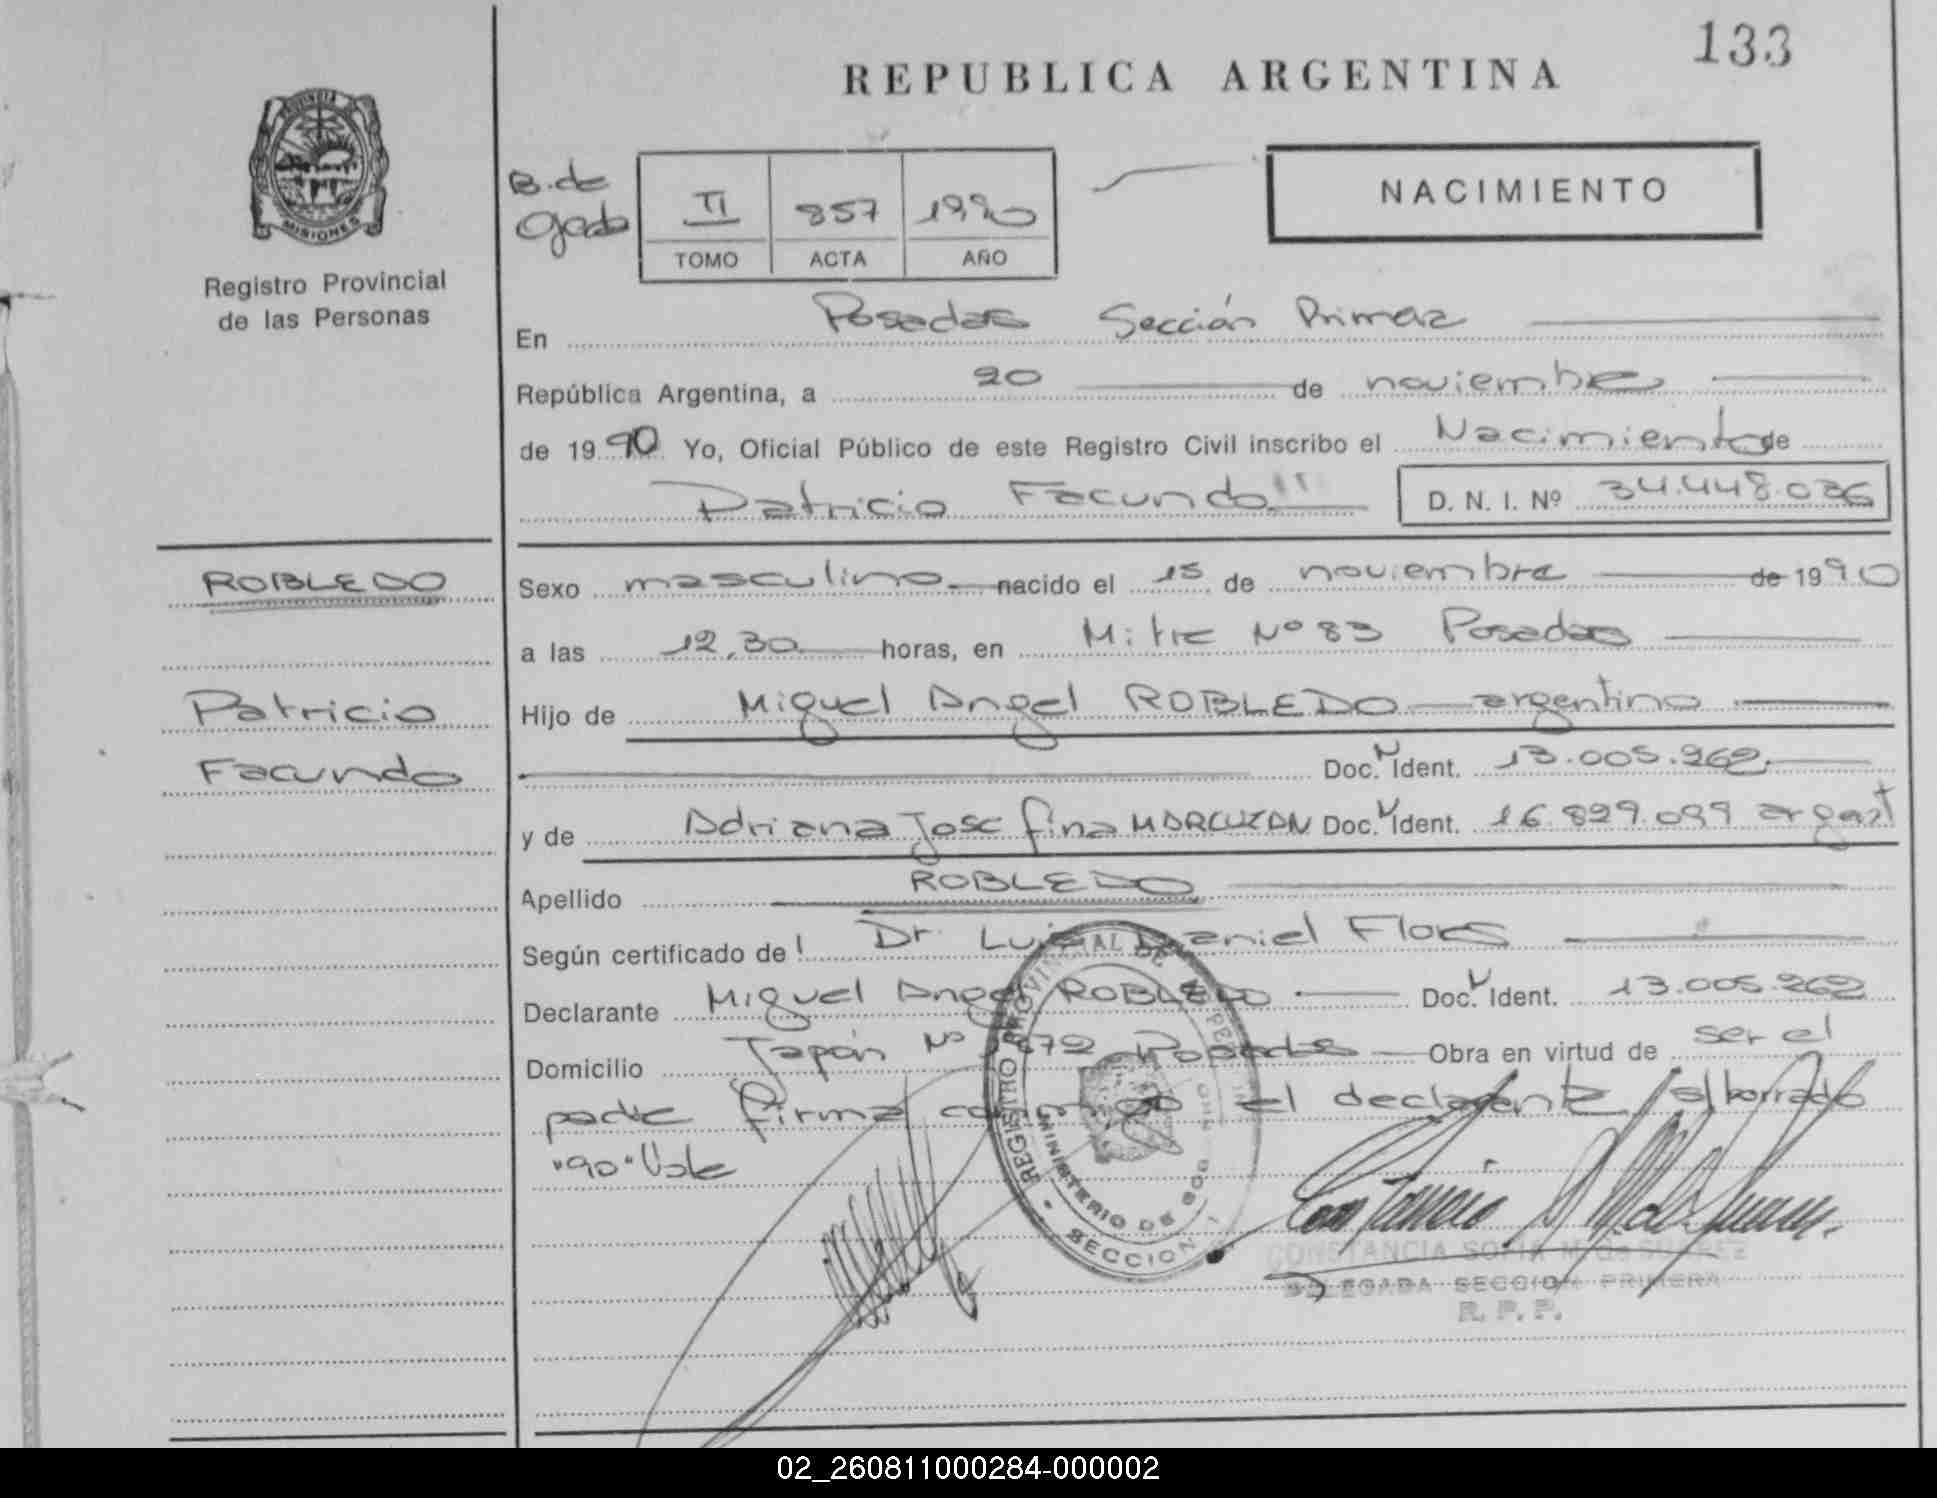 133
REPUBLICA ARGENTINA
PROVINCIA DE
MISIONES
Registro Provincial
de las Personas
B. de
Gado
II 857 1990
TOMO ACTA AÑO
NACIMIENTO
En Posadas Sección Primera
República Argentina, a 20 de noviembre
de 1990 Yo, Oficial Público de este Registro Civil inscribo el Nacimiento de
Patricio Facundo
D. N. I. Nº 34.448.036
ROBLEDO
Patricio
Facundo
Sexo masculino nacido el 15 de noviembre de 1990
a las 12,30 horas, en Mitre Nº 83 Posadas
Hijo de Miguel Angel ROBLEDO argentino
Doc. N Ident. 13.005.262
y de Adriana Josefina MARCUZAN Doc. N Ident. 16.829.099 argent
Apellido ROBLEDO
Según certificado de ! Dr. Luis Daniel Flores
Declarante Miguel Angel ROBLEDO Doc. N Ident. 13.005.262
Domicilio Japón Nº 672 Posadas Obra en virtud de ser el
padre firma conmigo el declarante s/borrado
"90" Vale
REGISTRO PROVINCIAL DE
MINISTERIO DE GOB
SECCION
CONSTANCIA SOFIA M. de SUAREZ
DELEGADA SECCION PRIMERA
R. P. P.
02_260811000284-000002